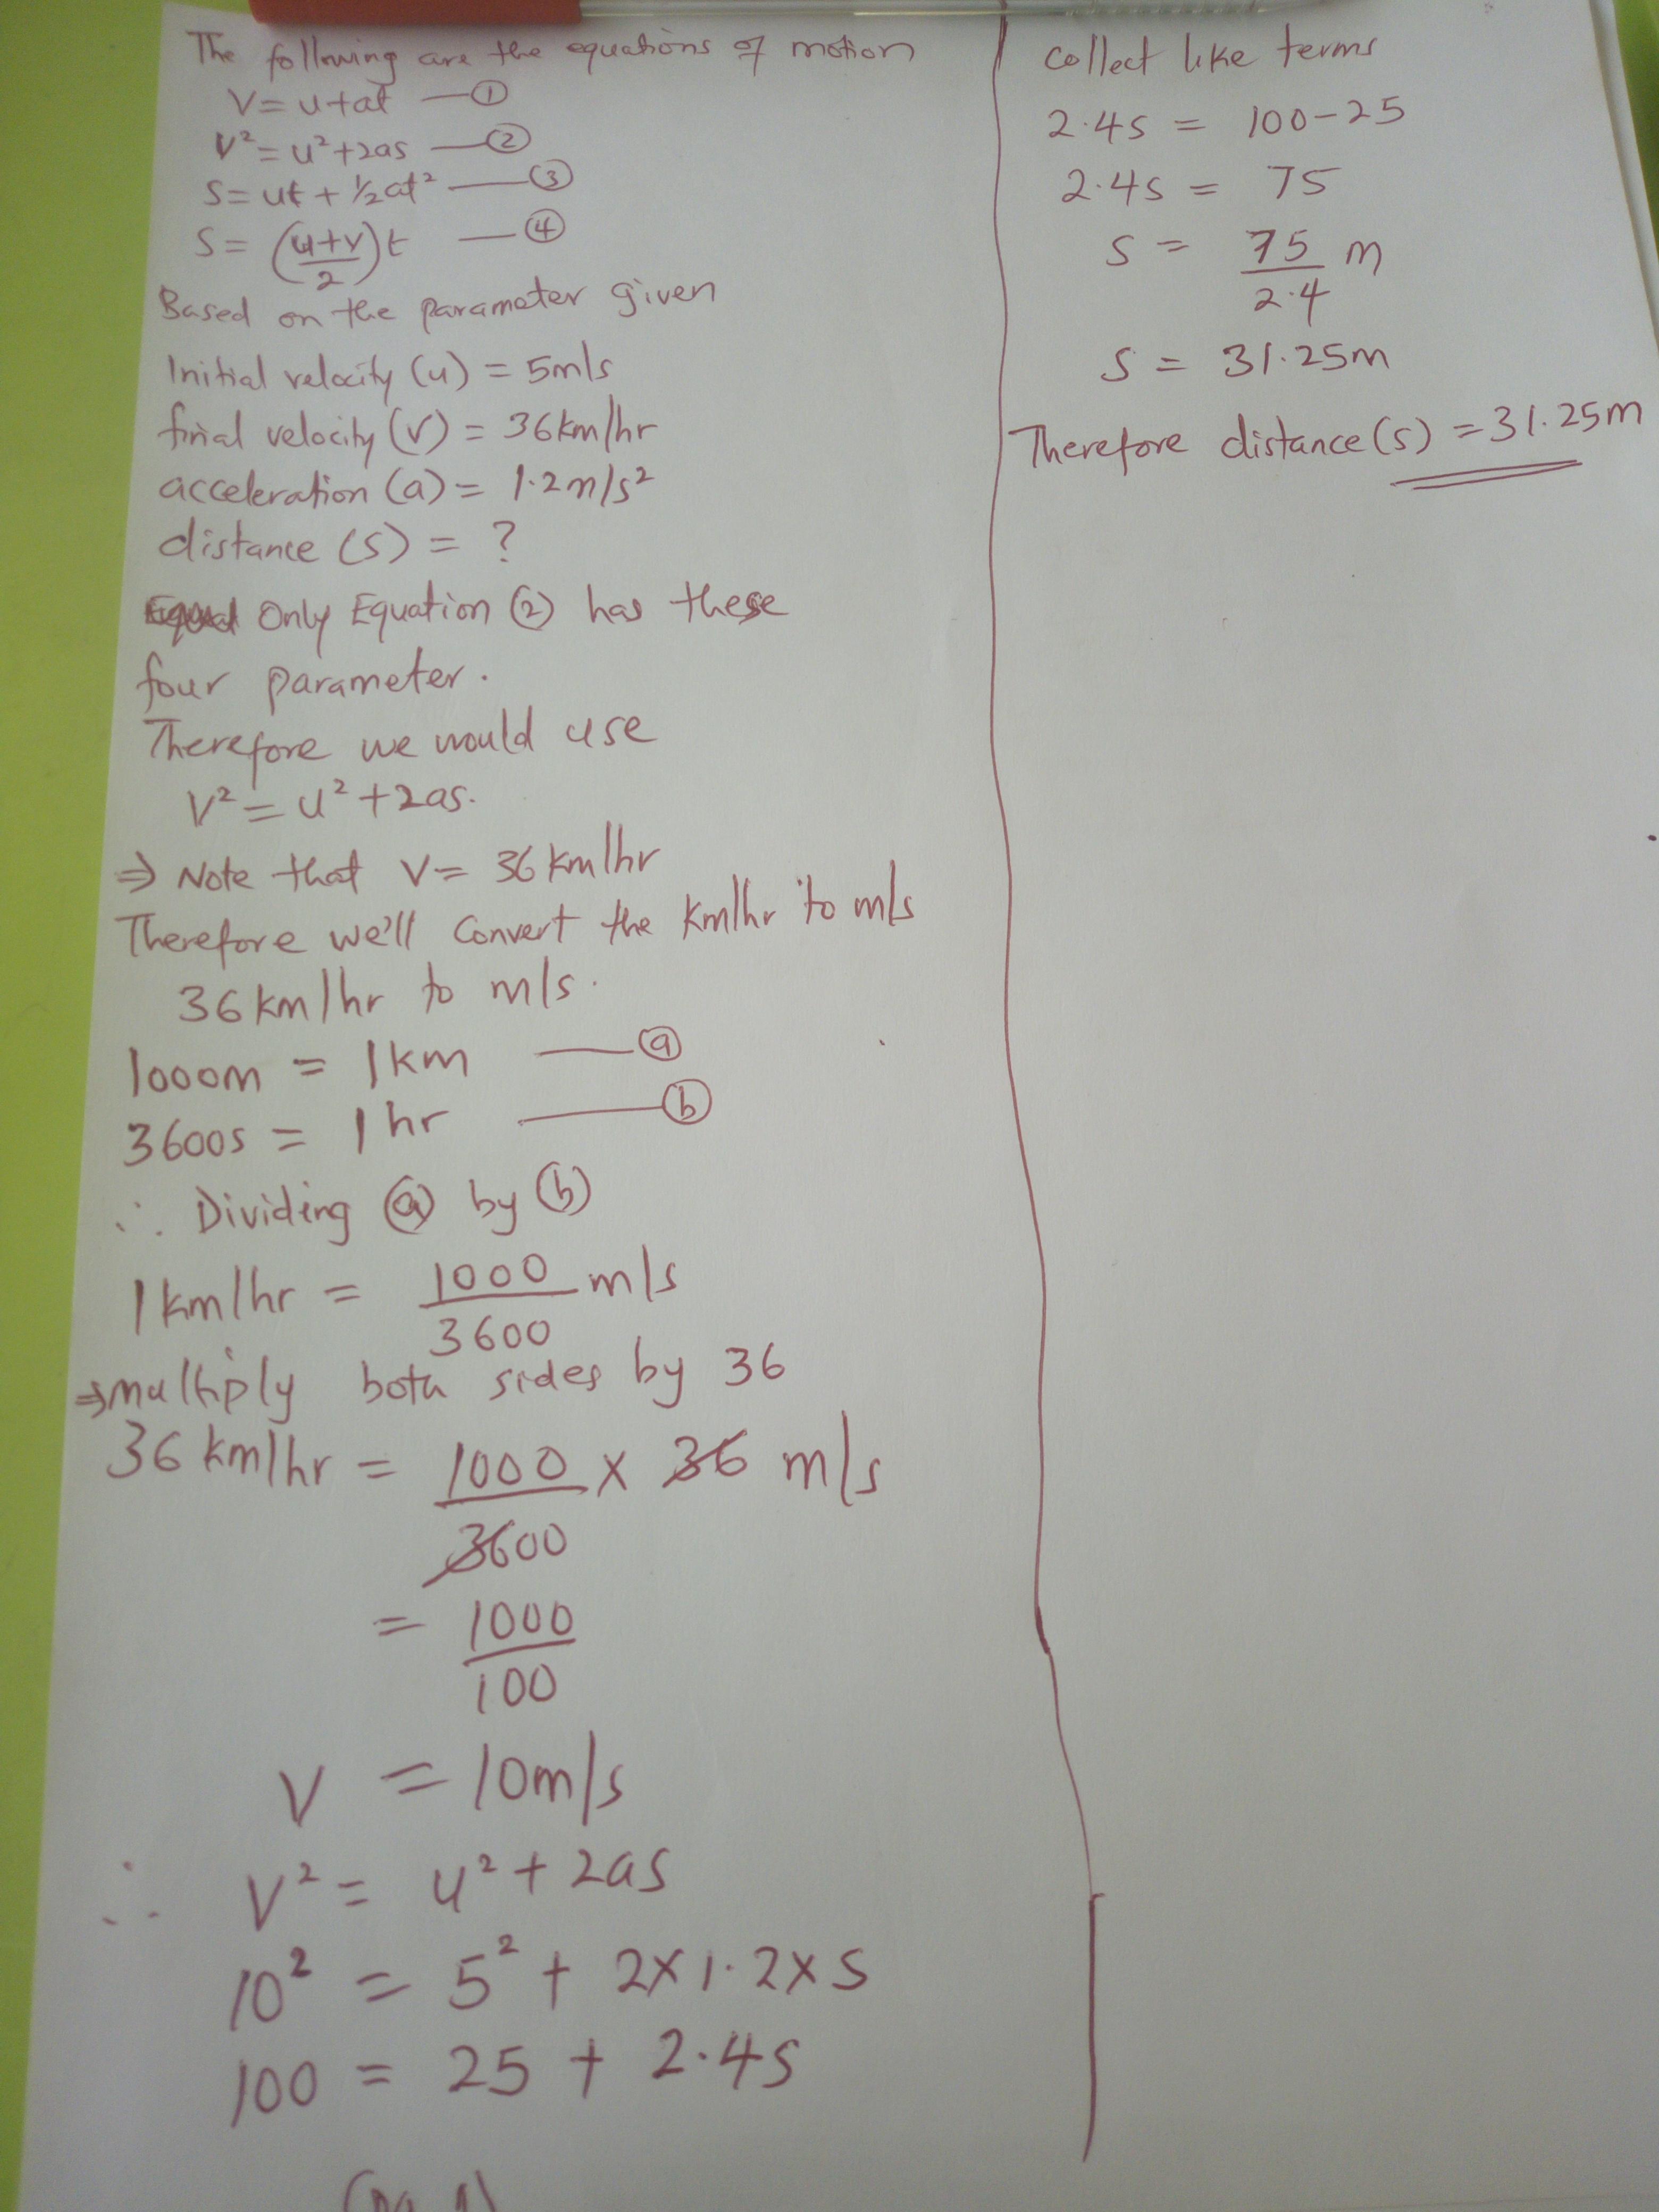 The following are the equations of motion
V = u+at —①
V² = u²+2as —②
S = ut + ½at² —③
S = (u+v/2)t —④
Based on the parameter given
Initial velocity (u) = 5m/s
final velocity (v) = 36km/hr
acceleration (a) = 1.2m/s²
distance (s) = ?
Only Equation ② has these
four parameter.
Therefore we would use
V² = u²+2as.
⇒ Note that V = 36km/hr
Therefore we'll Convert the Km/hr to m/s
36km/hr to m/s.
1000m = 1km —ⓐ
3600s = 1hr —ⓑ
∴ Dividing ⓐ by ⓑ
1km/hr = 1000/3600 m/s
⇒ multiply both sides by 36
36km/hr = 1000/3600 × 36 m/s
= 1000/100
V = 10m/s
∴ V² = u² + 2as
10² = 5² + 2×1.2×s
100 = 25 + 2.4s
collect like terms
2.4s = 100-25
2.4s = 75
S = 75/2.4 m
S = 31.25m
Therefore distance (s) = 31.25m